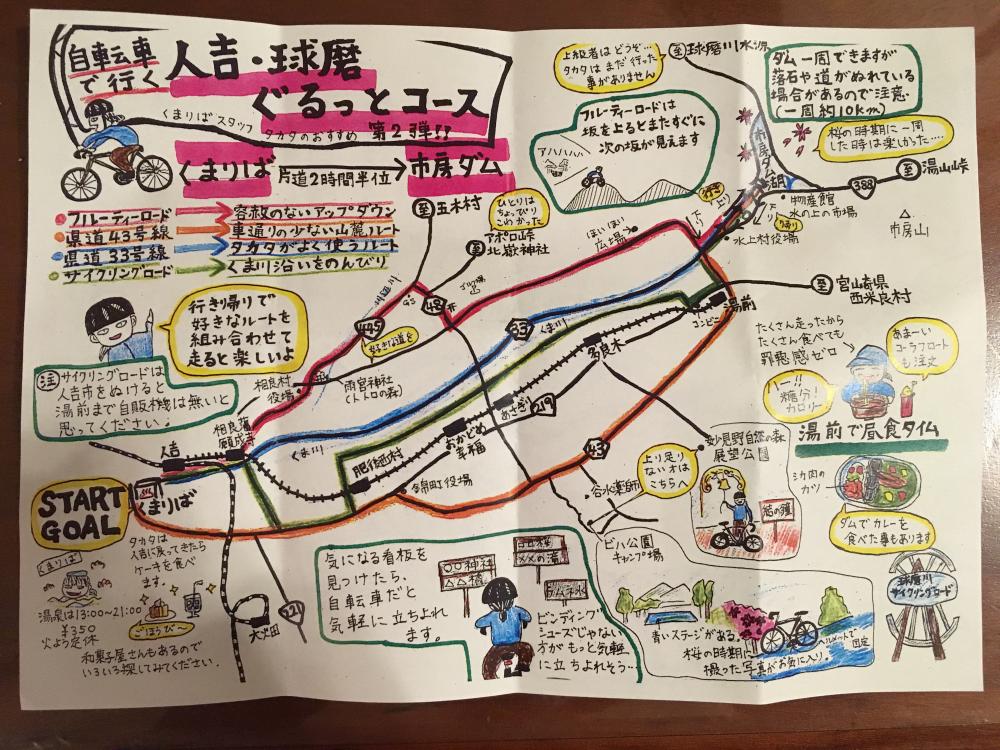 自転車
で行く
人吉・球磨
ぐるっとコース
くまりばスタッフ タカタのおすすめ 第2弾!!
くまりば 片道2時間半位 市房ダム
フルーティーロード 容赦のないアップダウン
県道43号線 車通りの少ない山麓ルート
県道33号線 タカタがよく使うルート
サイクリングロード くま川沿いをのんびり
行き帰りで
好きなルートを
組み合わせて
走ると楽しいよ
注 サイクリングロードは
人吉市をぬけると
湯前まで自販機は無いと
思ってください。
上級者はどうぞ…
タカタはまだ行った
事がありません
至 球磨川水源
ダム一周できますが
落石や道がぬれている
場合があるので注意
(一周約10km)
桜の時期に一周
した時は楽しかった…
フルーティーロードは
坂を上るとまたすぐに
次の坂が見えます
アハハハハ
市房ダム湖
388
至 湯山峠
市房山
物産館
水の上の市場
水上村役場
行き
下り
帰り
下り
ほいほい
広場
至 五木村
ひとりは
ちょっぴり
こわかった
アポロ峠
至 北嶽神社
川辺川
48
445
33
くま川
好きな道を
相良村
役場
雨宮神社
(トトロの森)
至 宮崎県
西米良村
湯前
コンビニ
多良木
あさぎり
219
おかどめ
幸福
肥後西村
錦町役場
くま川
相良藩
願成寺
人吉
くまりば
START
GOAL
43
谷水薬師
ビハ公園
キャンプ場
妙見野自然の森
展望公園
上り足り
ない方は
こちらへ
たくさん走ったから
たくさん食べても
罪悪感ゼロ
ハー!!
糖分!
カロリー
あまーい
コーラフロート
も注文
湯前で昼食タイム
シカ肉の
カツ
ダムでカレーを
食べた事もあります
球磨川
サイクリングロード
タカタは
人吉に戻ってきたら
ケーキを食べ
ます。
くまりば
温泉は13:00~21:00
¥350
火よう定休
ごほうび~
和菓子屋さんもあるので
いろいろ探してみてください。
大畑
221
気になる看板を
見つけたら、
自転車だと
気軽に立ちよれ
ます。
○○神社
△△橋
××の滝
ビンディング
シューズじゃない
方がもっと気軽
に立ちよれそう…
青いステージがある。
桜の時期に
撮った写真がお気に入り。
ヘルメットで
固定